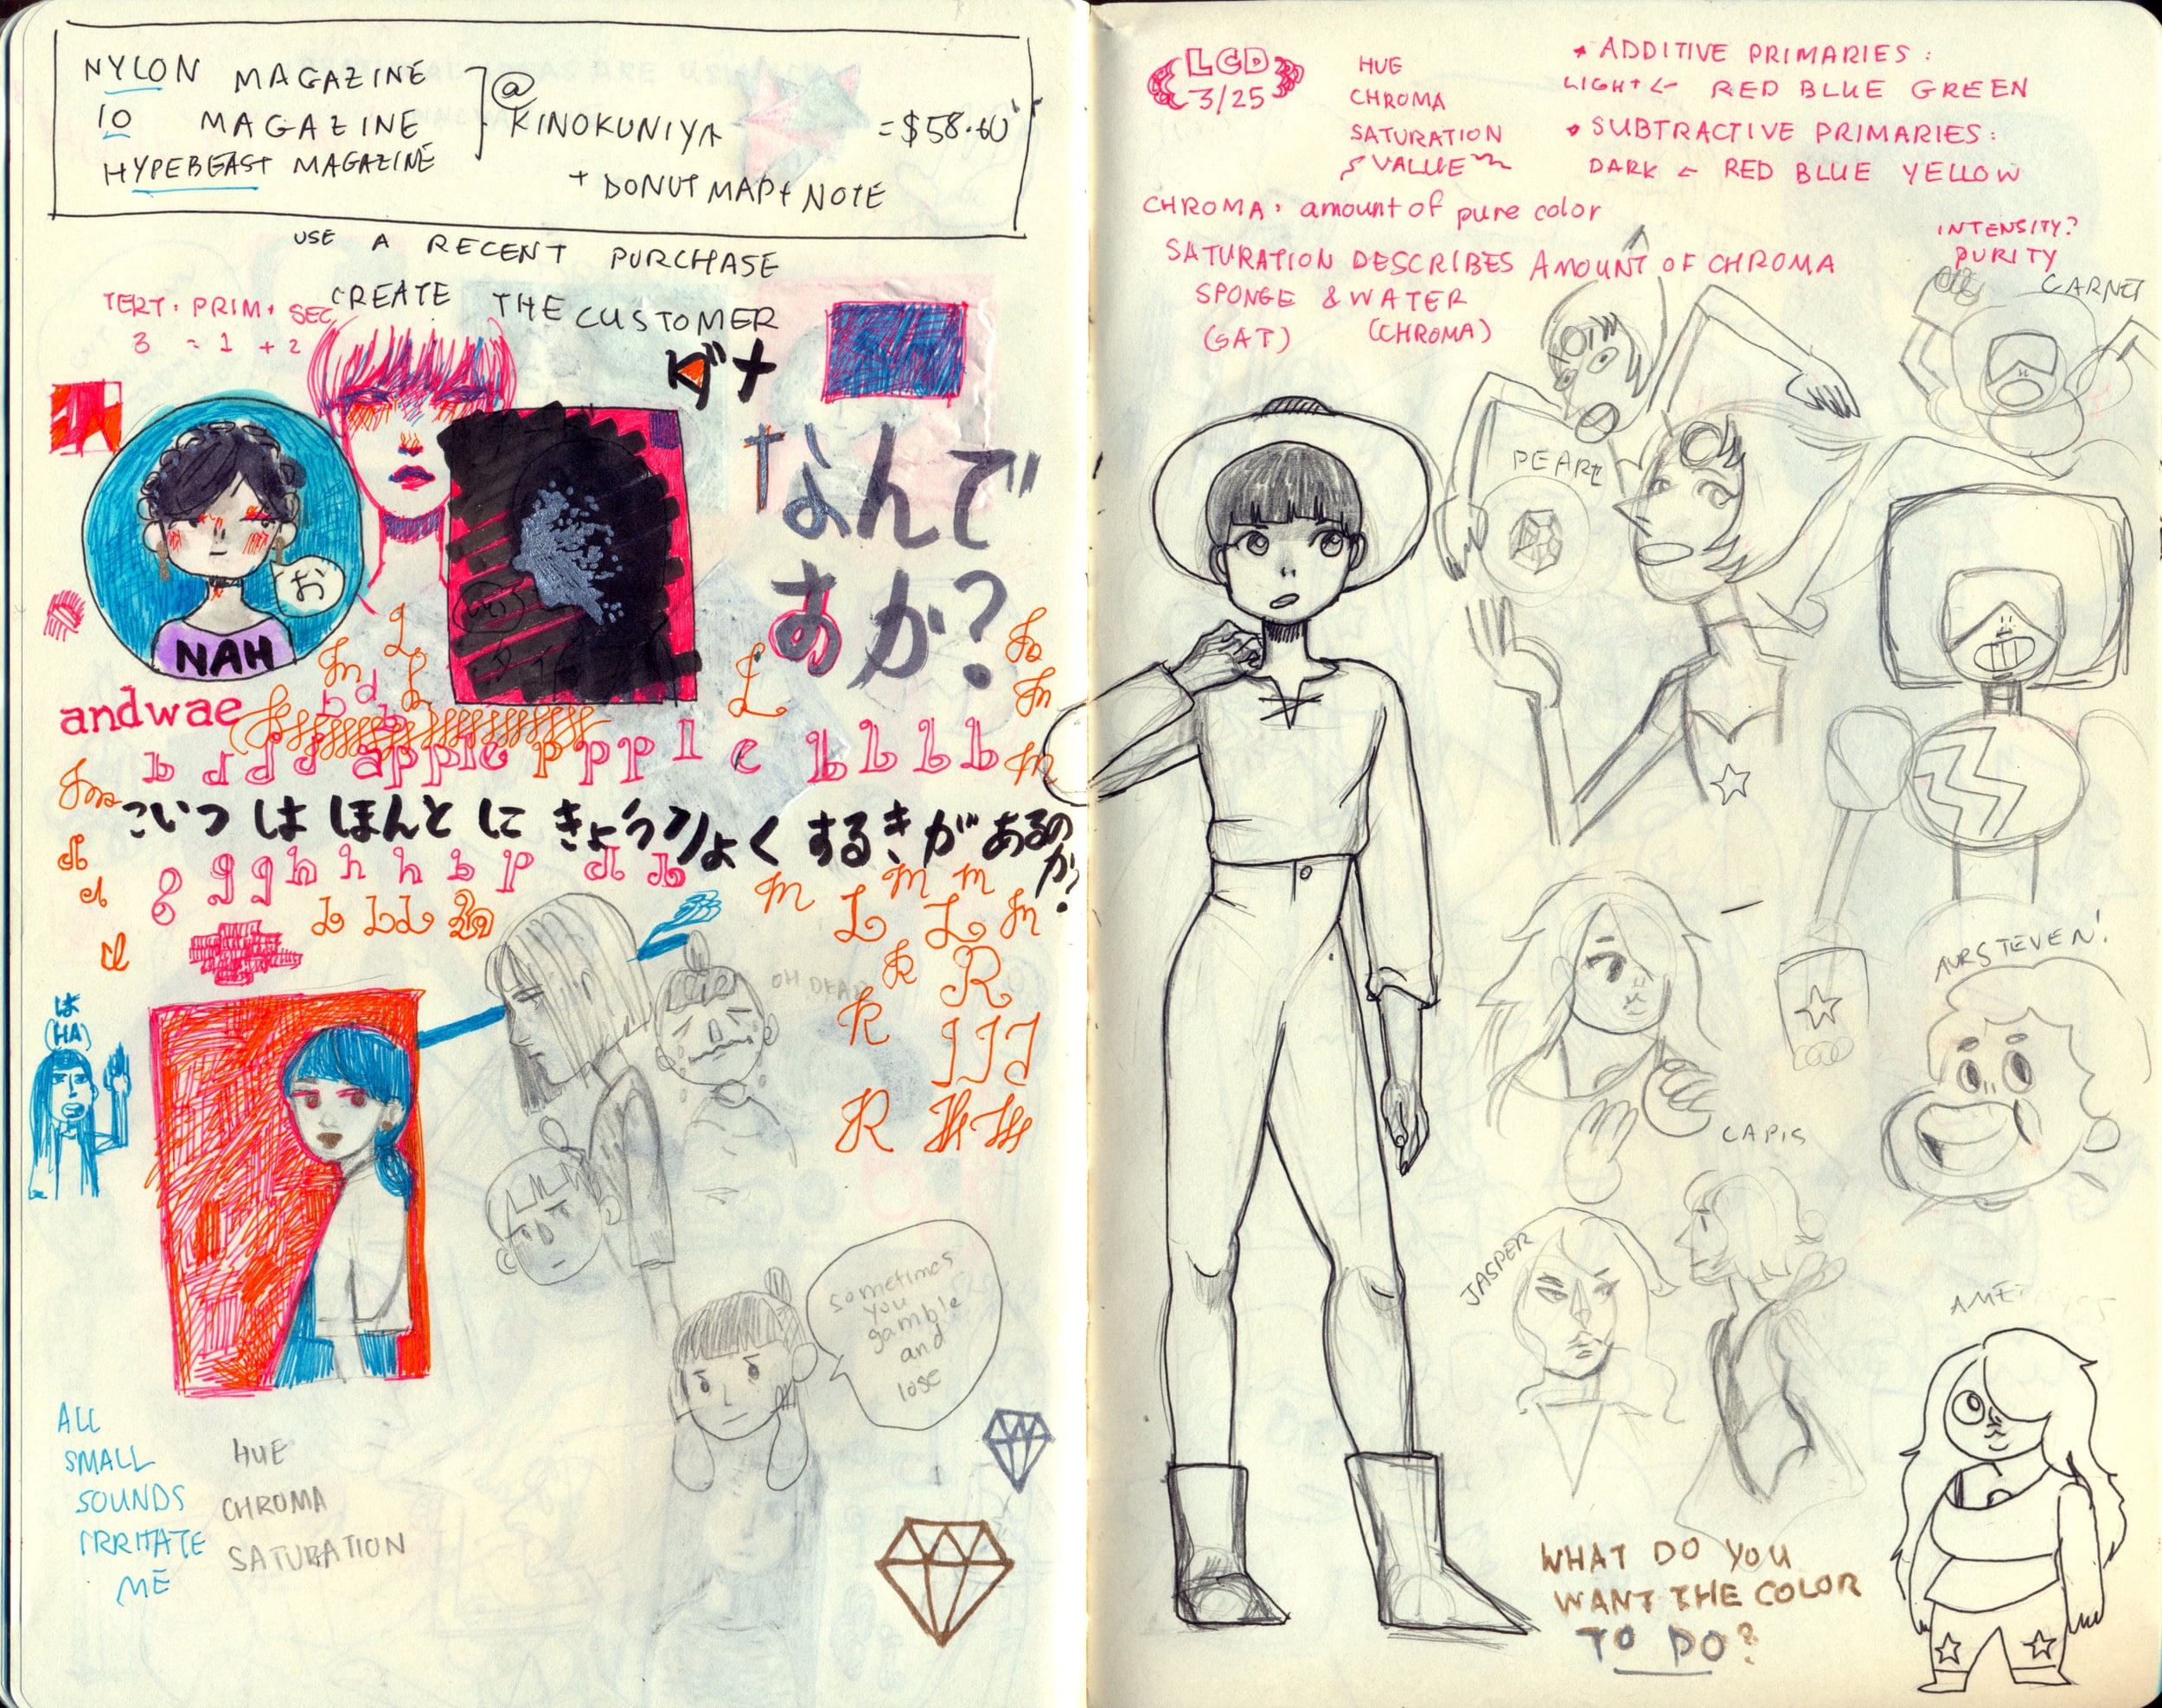 NYLON MAGAZINE
10 MAGAZINE
HYPEBEAST MAGAZINE
@
KINOKUNIYA
= $58.60
+ DONUT MAP + NOTE
USE A RECENT PURCHASE
CREATE THE CUSTOMER
TERT. PRIM. SEC
3 = 1 + 2
ダナ
なんで
すか?
お
NAH
andwae
b d d d apple p p p l e b b b b
こいつ は ほんと に きょうりょく するき が あるのか?
g g g h h h b p d b
は
(HA)
OH DEAR
sometimes
you
gamble
and
lose
ALL
SMALL
SOUNDS
IRRITATE
ME
HUE
CHROMA
SATURATION
LCD
3/25
HUE
CHROMA
SATURATION
VALUE
• ADDITIVE PRIMARIES:
LIGHT ← RED BLUE GREEN
• SUBTRACTIVE PRIMARIES:
DARK ← RED BLUE YELLOW
CHROMA: amount of pure color
SATURATION DESCRIBES AMOUNT OF CHROMA
SPONGE & WATER
(SAT) (CHROMA)
INTENSITY?
PURITY
GARNET
PEARL
AURSTEVEN!
LAPIS
JASPER
WHAT DO YOU
WANT THE COLOR
TO DO?